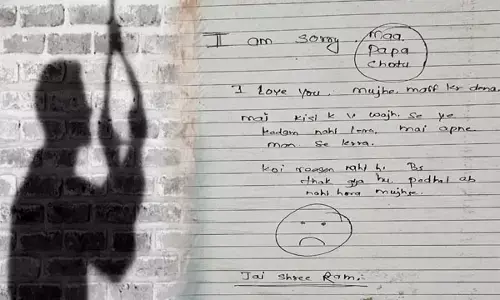 I am sorry . Maa
Papa
Chotu
I Love you . Mujhe Maff kr dena
mai kisi k v wajh se ye
kadam nahi lena, mai apne
man se krra.
koi reason nahi h. Bs
thak gya hu padhai ab
nahi hora mujhse.
Jai Shree Ram.